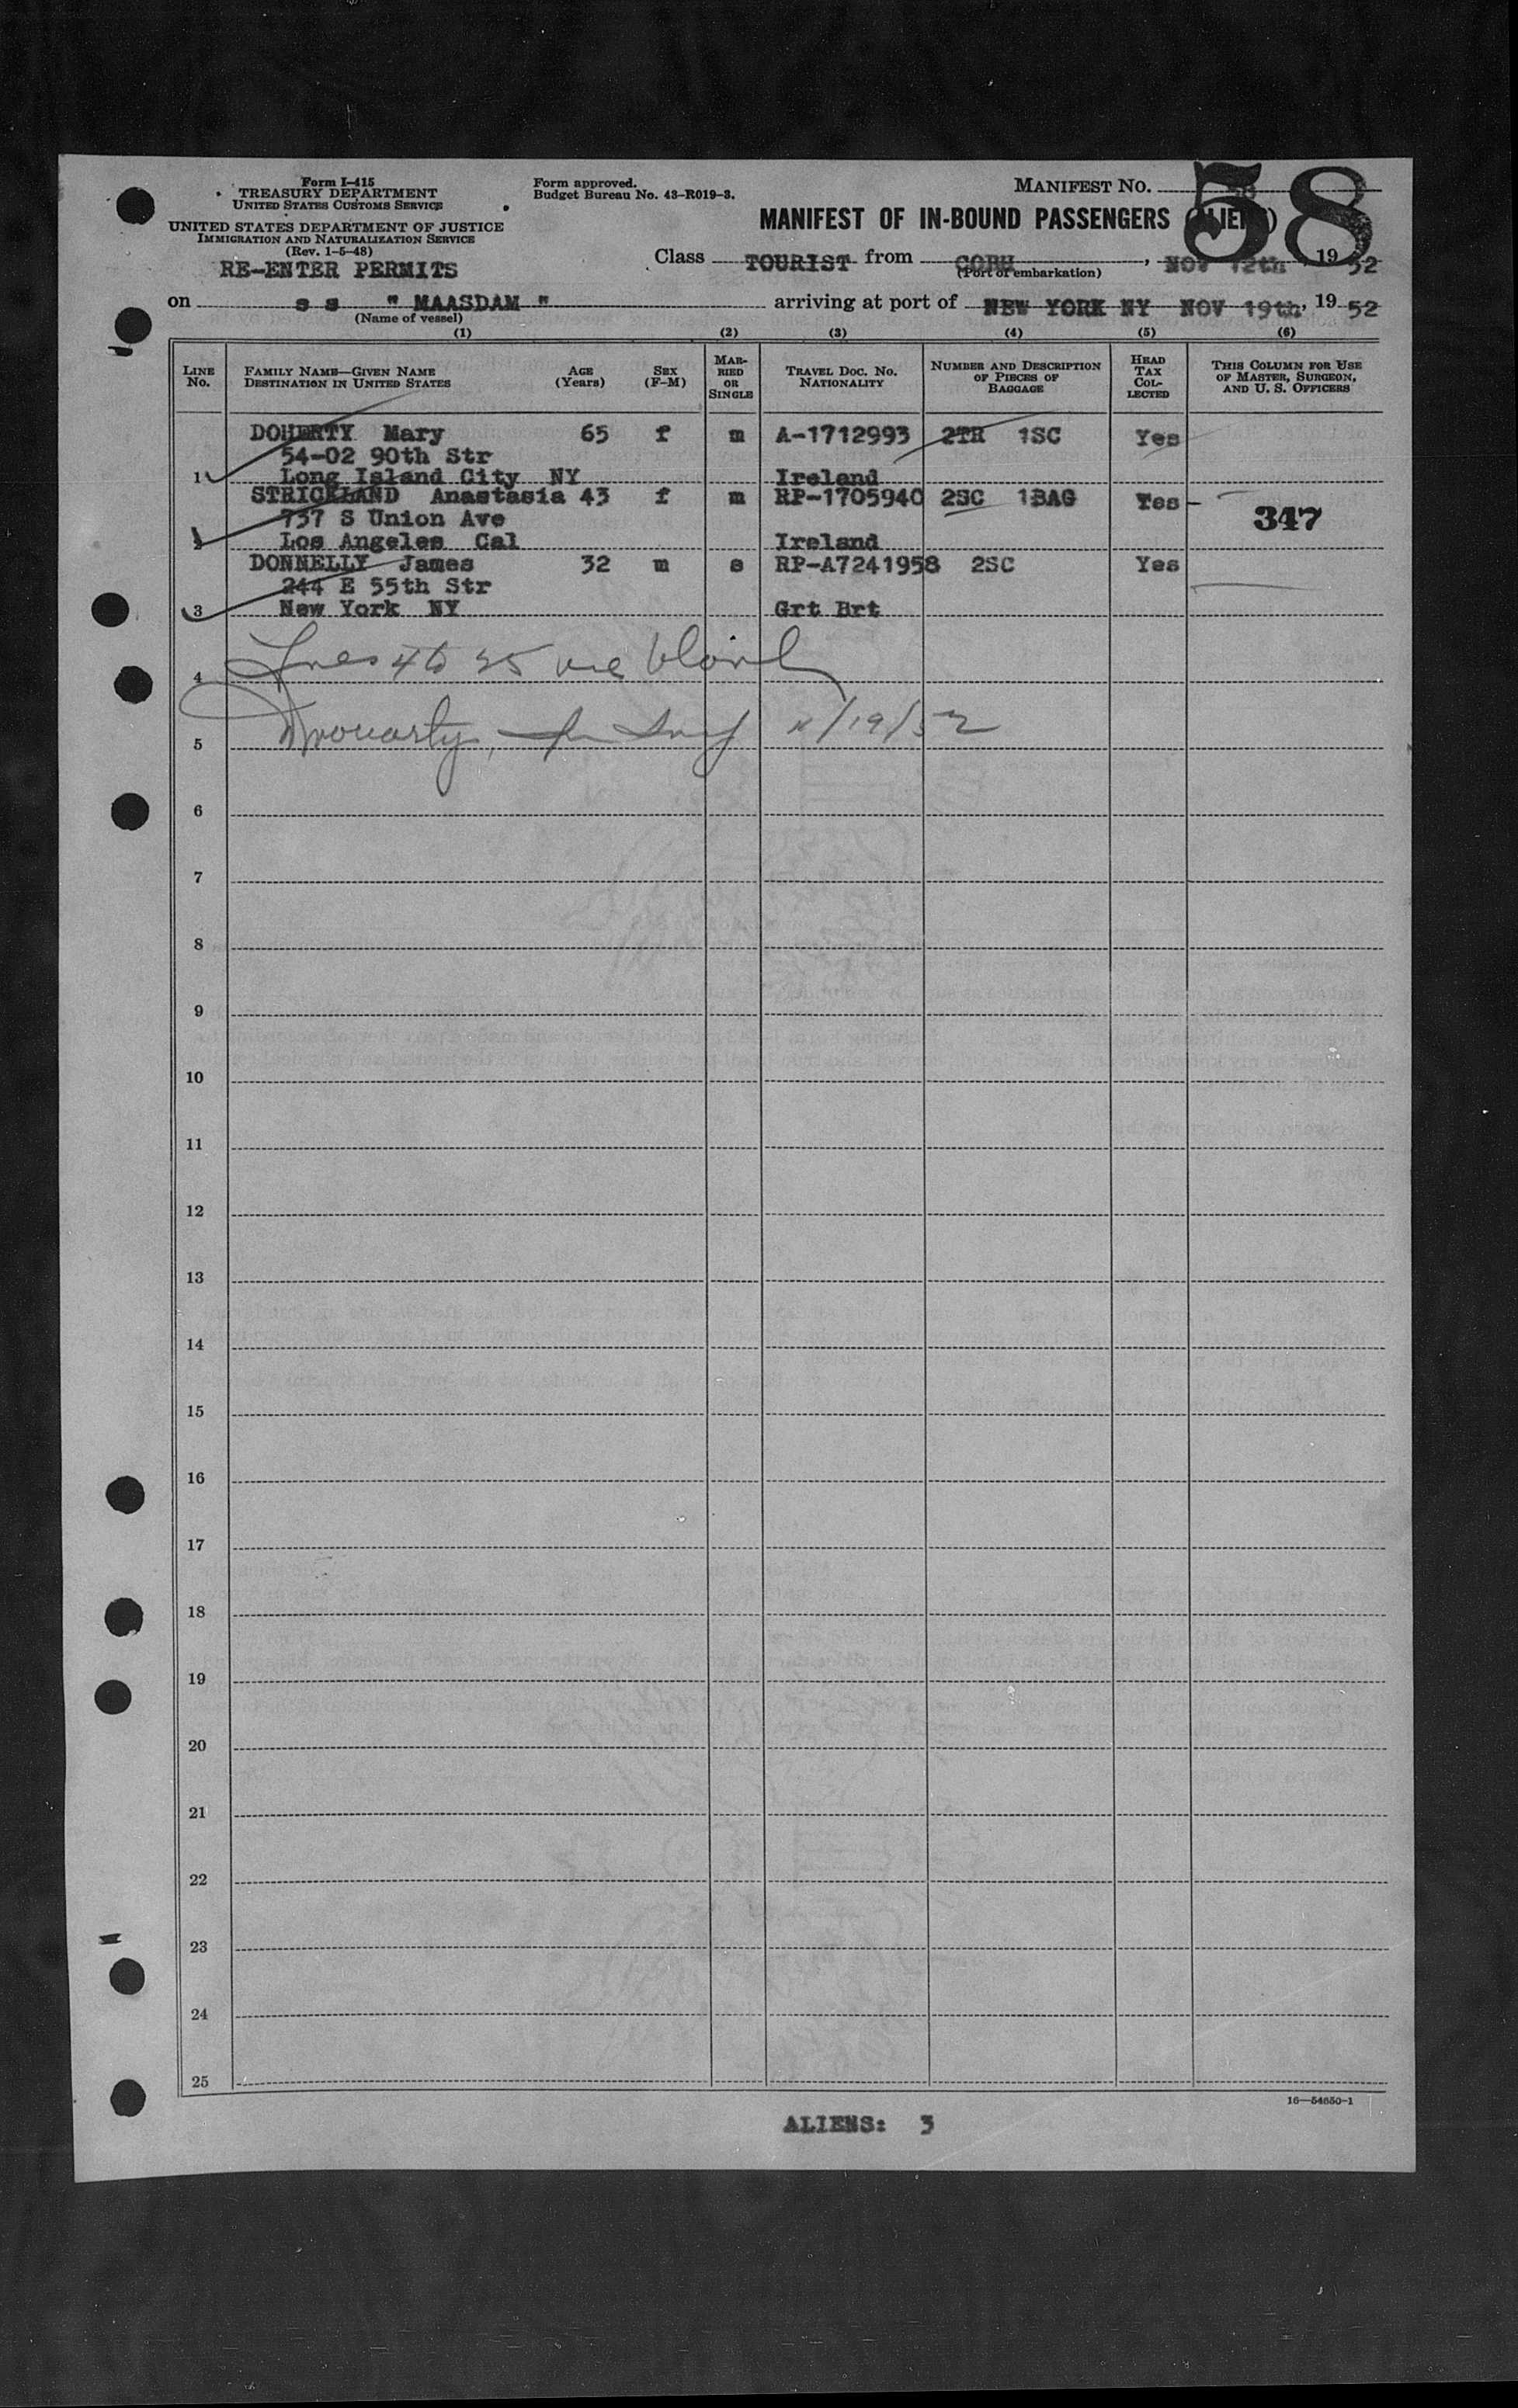 Form I-415
TREASURY DEPARTMENT
UNITED STATES CUSTOMS SERVICE
UNITED STATES DEPARTMENT OF JUSTICE
IMMIGRATION AND NATURALIZATION SERVICE
(Rev. 1-5-48)
RE-ENTER PERMITS
Form approved.
Budget Bureau No. 43-R019-3.
MANIFEST NO. 58
MANIFEST OF IN-BOUND PASSENGERS (ALIENS)
Class TOURIST from COBH, NOV 12th, 19 52
(Port of embarkation)
on s s " MAASDAM " arriving at port of NEW YORK NY NOV 19th, 19 52
(Name of vessel)
(1) (2) (3) (4) (5) (6)
LINE No. FAMILY NAME—GIVEN NAME DESTINATION IN UNITED STATES AGE (Years) SEX (F-M) MARRIED OR SINGLE TRAVEL DOC. NO. NATIONALITY NUMBER AND DESCRIPTION OF PIECES OF BAGGAGE HEAD TAX COLLECTED THIS COLUMN FOR USE OF MASTER, SURGEON, AND U. S. OFFICERS
DOHERTY Mary 65 f m A-1712993 2TR 1SC Yes
54-02 90th Str
1 Long Island City NY Ireland
STRICKLAND Anastasia 43 f m RP-1705940 2SC 1BAG Yes
737 S Union Ave 347
2 Los Angeles Cal Ireland
DONNELLY James 32 m s RP-A7241958 2SC Yes
244 E 55th Str
3 New York NY Grt Brt
4 Lines 4 to 25 are blank
5 11/19/52
6
7
8
9
10
11
12
13
14
15
16
17
18
19
20
21
22
23
24
25
16—54650-1
ALIENS: 3